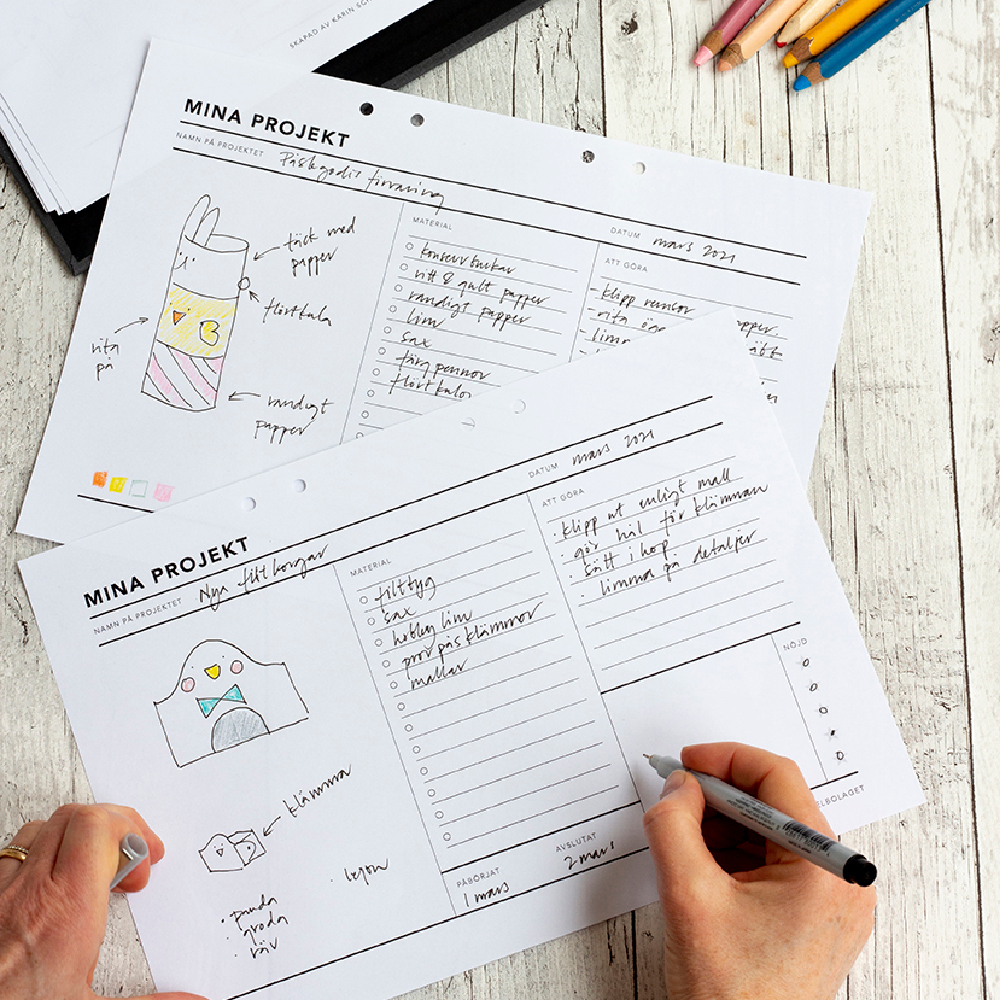 SKAPAD AV KARIN
MINA PROJEKT
NAMN PÅ PROJEKTET Påskgodis förvaring
DATUM mars 2021
täck med
papper
flörtkula
vita
på
randigt
papper
MATERIAL
konservburkar
vitt & gult papper
randigt papper
lim
sax
färgpennor
flörtkulor
ATT GÖRA
- klipp remsor
- rita
- limma
MINA PROJEKT
NAMN PÅ PROJEKTET Nya filtkorgar
DATUM mars 2021
klämma
· panda
· groda
· räv
MATERIAL
filttyg
sax
hobby lim
mallar
ATT GÖRA
· klipp ut enligt mall
· gör hål för klämman
· sätt ihop
· limma på detaljer
NÖJD
PÅBÖRJAT
1 mars
AVSLUTAT
2 mars
ELBOLAGET